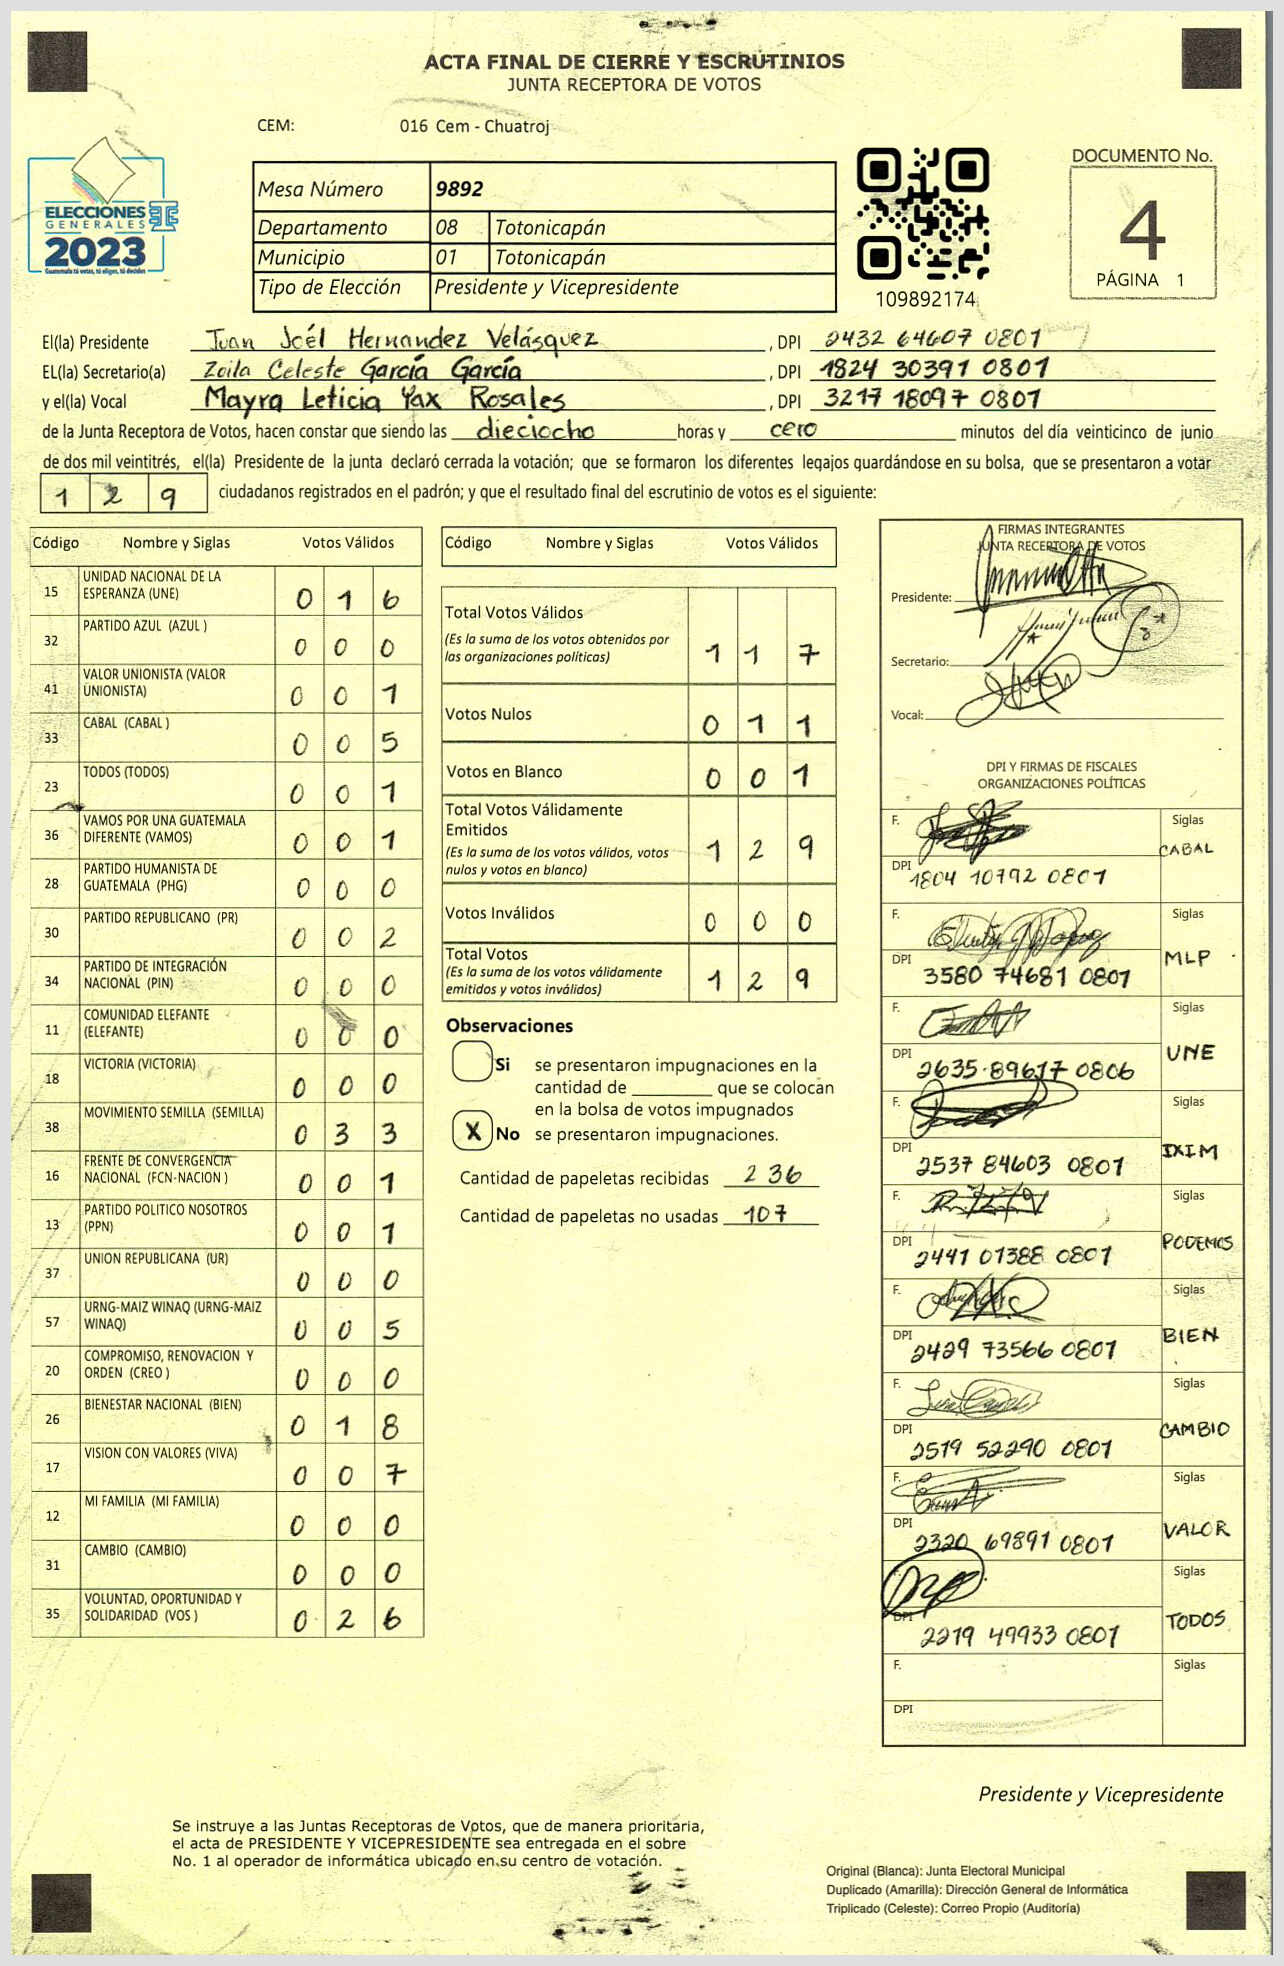 ACTA FINAL DE CIERRE Y ESCRUTINIOS
JUNTA RECEPTORA DE VOTOS
CEM: 016 Cem - Chuatroj
ELECCIONES
GENERALES
2023
Guatemala tú votas, tú eliges, tú decides
Mesa Número 9892
Departamento 08 Totonicapán
Municipio 01 Totonicapán
Tipo de Elección Presidente y Vicepresidente
109892174
DOCUMENTO No.
4
PÁGINA 1
El(la) Presidente Juan Joél Hernandez Velásquez, DPI 2432 64607 0801
EL(la) Secretario(a) Zoila Celeste García García, DPI 1824 30391 0801
y el(la) Vocal Mayra Leticia Yax Rosales, DPI 3217 18097 0801
de la Junta Receptora de Votos, hacen constar que siendo las dieciocho horas y cero minutos del día veinticinco de junio
de dos mil veintitrés, el(la) Presidente de la junta declaró cerrada la votación; que se formaron los diferentes legajos guardándose en su bolsa, que se presentaron a votar
1 2 9 ciudadanos registrados en el padrón; y que el resultado final del escrutinio de votos es el siguiente:
Código Nombre y Siglas Votos Válidos
15 UNIDAD NACIONAL DE LA ESPERANZA (UNE) 0 1 6
32 PARTIDO AZUL (AZUL ) 0 0 0
41 VALOR UNIONISTA (VALOR UNIONISTA) 0 0 1
33 CABAL (CABAL ) 0 0 5
23 TODOS (TODOS) 0 0 1
36 VAMOS POR UNA GUATEMALA DIFERENTE (VAMOS) 0 0 1
28 PARTIDO HUMANISTA DE GUATEMALA (PHG) 0 0 0
30 PARTIDO REPUBLICANO (PR) 0 0 2
34 PARTIDO DE INTEGRACIÓN NACIONAL (PIN) 0 0 0
11 COMUNIDAD ELEFANTE (ELEFANTE) 0 0 0
18 VICTORIA (VICTORIA) 0 0 0
38 MOVIMIENTO SEMILLA (SEMILLA) 0 3 3
16 FRENTE DE CONVERGENCIA NACIONAL (FCN-NACION ) 0 0 1
13 PARTIDO POLITICO NOSOTROS (PPN) 0 0 1
37 UNION REPUBLICANA (UR) 0 0 0
57 URNG-MAIZ WINAQ (URNG-MAIZ WINAQ) 0 0 5
20 COMPROMISO, RENOVACION Y ORDEN (CREO ) 0 0 0
26 BIENESTAR NACIONAL (BIEN) 0 1 8
17 VISION CON VALORES (VIVA) 0 0 7
12 MI FAMILIA (MI FAMILIA) 0 0 0
31 CAMBIO (CAMBIO) 0 0 0
35 VOLUNTAD, OPORTUNIDAD Y SOLIDARIDAD (VOS ) 0 2 6
Código Nombre y Siglas Votos Válidos
Total Votos Válidos
(Es la suma de los votos obtenidos por
las organizaciones políticas) 1 1 7
Votos Nulos 0 1 1
Votos en Blanco 0 0 1
Total Votos Válidamente
Emitidos
(Es la suma de los votos válidos, votos
nulos y votos en blanco) 1 2 9
Votos Inválidos 0 0 0
Total Votos
(Es la suma de los votos válidamente
emitidos y votos inválidos) 1 2 9
Observaciones
Si se presentaron impugnaciones en la
cantidad de ________ que se colocan
en la bolsa de votos impugnados
X No se presentaron impugnaciones.
Cantidad de papeletas recibidas 236
Cantidad de papeletas no usadas 107
FIRMAS INTEGRANTES
JUNTA RECEPTORA DE VOTOS
Presidente:
Secretario:
Vocal:
DPI Y FIRMAS DE FISCALES
ORGANIZACIONES POLÍTICAS
F. Siglas
DPI 1804 10792 0801 CABAL
F. Siglas
DPI 3580 74681 0801 MLP
F. Siglas
DPI 2635 89617 0806 UNE
F. Siglas
DPI 2537 84603 0801 IXIM
F. Siglas
DPI 2441 01388 0801 PODEMOS
F. Siglas
DPI 2429 73566 0801 BIEN
F. Siglas
DPI 2519 52290 0801 CAMBIO
F. Siglas
DPI 2320 69891 0801 VALOR
Siglas
DPI 2219 49933 0801 TODOS
F. Siglas
DPI
Presidente y Vicepresidente
Se instruye a las Juntas Receptoras de Votos, que de manera prioritaria,
el acta de PRESIDENTE Y VICEPRESIDENTE sea entregada en el sobre
No. 1 al operador de informática ubicado en su centro de votación.
Original (Blanca): Junta Electoral Municipal
Duplicado (Amarilla): Dirección General de Informática
Triplicado (Celeste): Correo Propio (Auditoría)